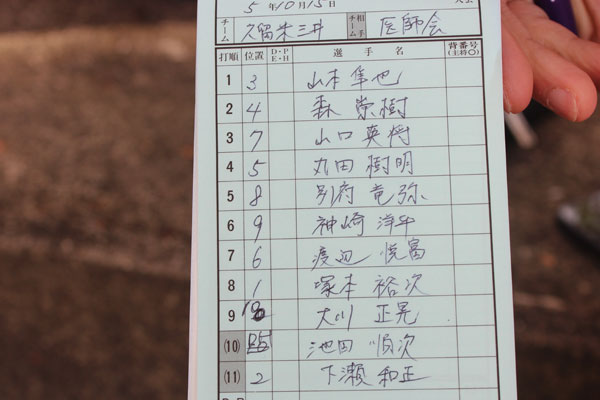 5 年 10 月 15 日
チーム 久留米三井 相手チーム 医師会
打順 位置 D・P E・H 選手名 背番号 (主将○)
1 3 山本 隼也
2 4 森 崇樹
3 7 山口 英将
4 5 丸田 樹明
5 8 別府 竜弥
6 9 神崎 洋平
7 6 渡辺 悦富
8 1 塚本 裕次
9 大川 正晃
(10) 池田 順次
(11) 2 下瀬 和正